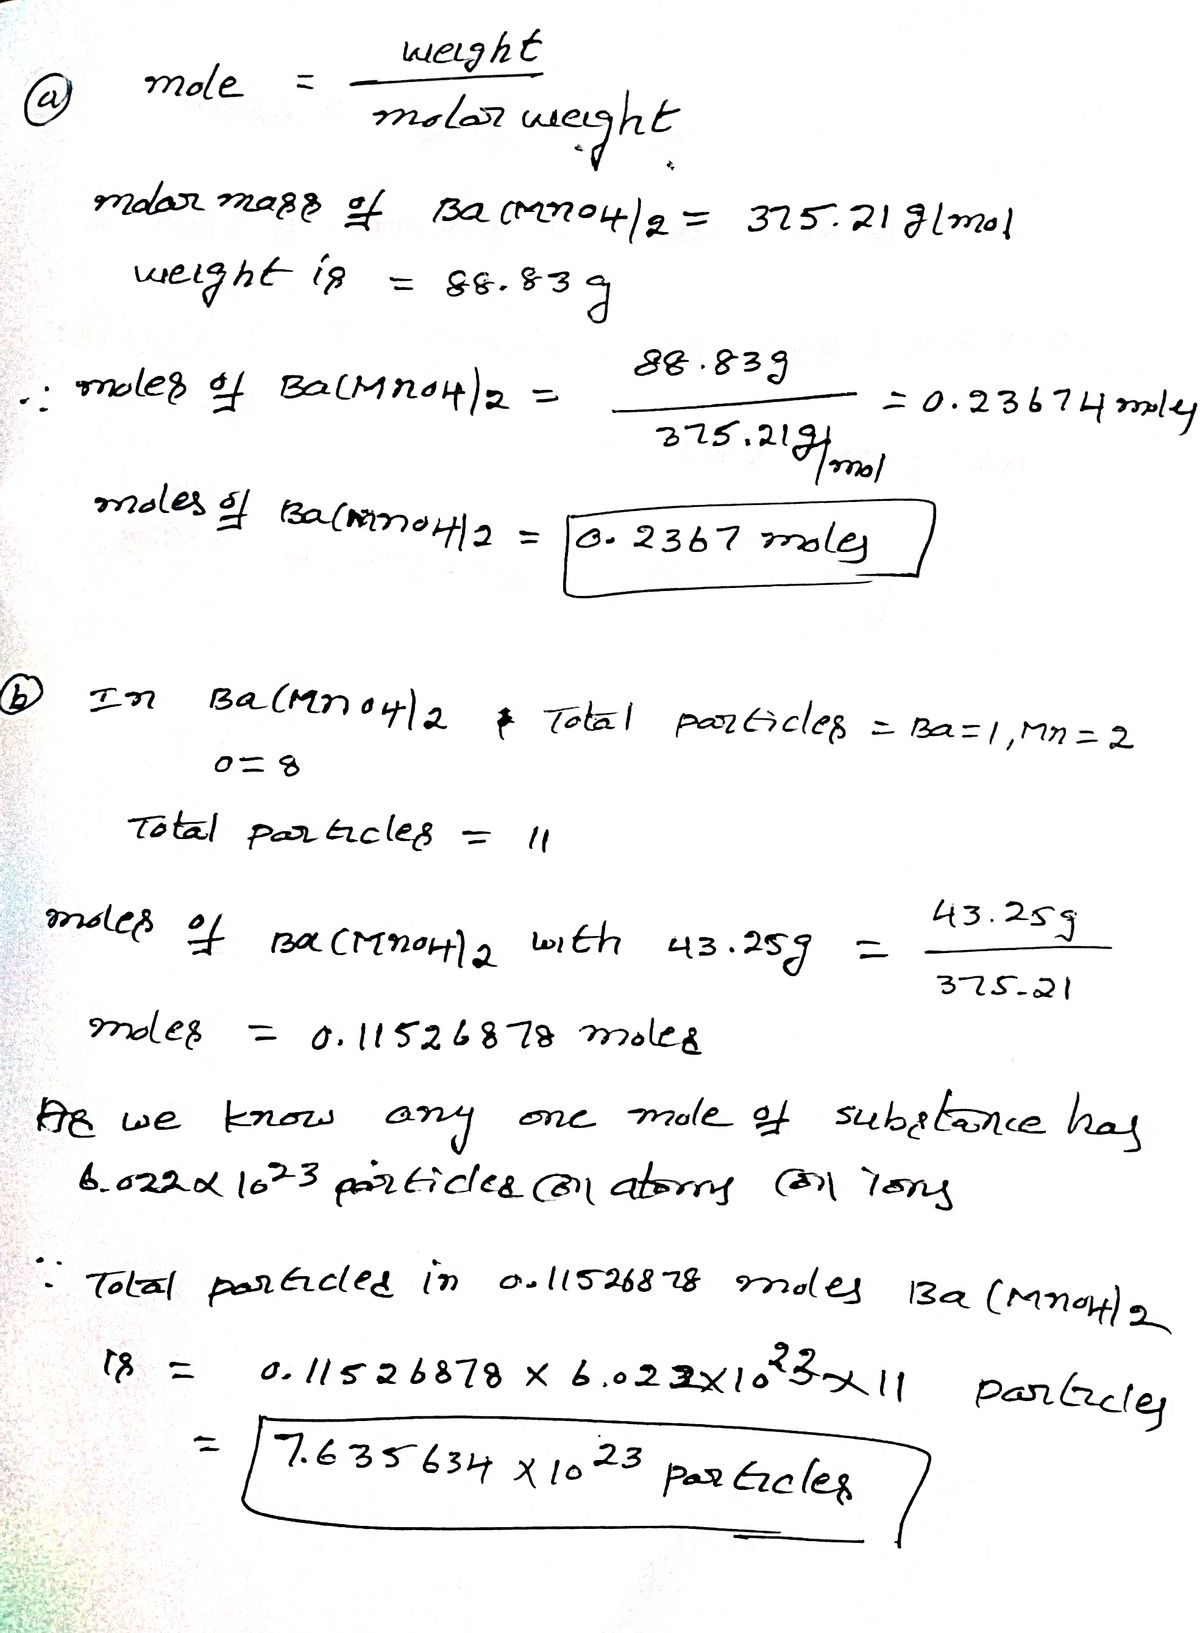 (a) mole = weight / molar weight
molar mass of Ba(MnO4)2 = 375.21 g/mol
weight is = 88.83 g
∴ moles of Ba(MnO4)2 = 88.83g / 375.21 g/mol = 0.23674 moles
moles of Ba(MnO4)2 = 0.2367 moles
(b) In Ba(MnO4)2 Total particles = Ba=1, Mn=2
O=8
Total particles = 11
moles of Ba(MnO4)2 with 43.25g = 43.25g / 375.21
moles = 0.11526878 moles
As we know any one mole of substance has
6.022x10^23 particles (or) atoms (or) ions
∴ Total particles in 0.11526878 moles Ba(MnO4)2
is = 0.11526878 x 6.022x10^23 x 11 particles
= 7.635634 x 10^23 particles